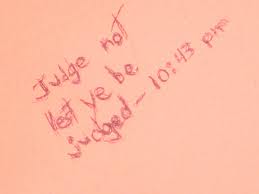 Judge not
lest ye be
judged - 10:43 pm